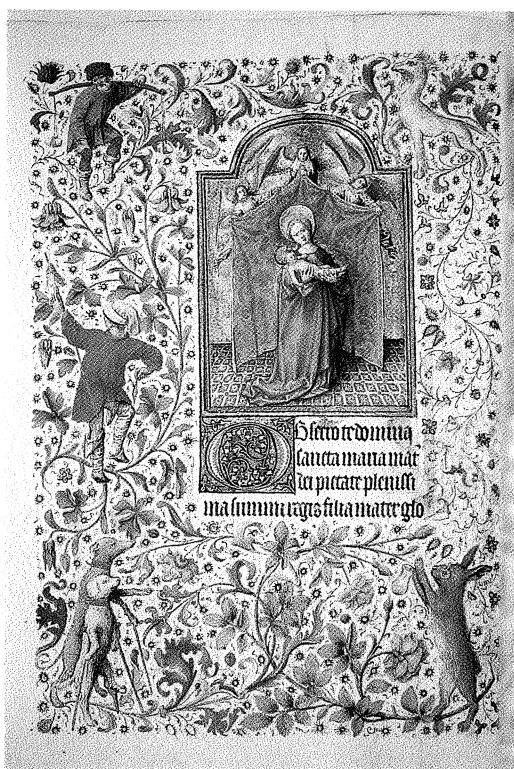 OBsecro te domina
sancta maria mat
dei pietate plenissi
ma summi regis filia mater glo